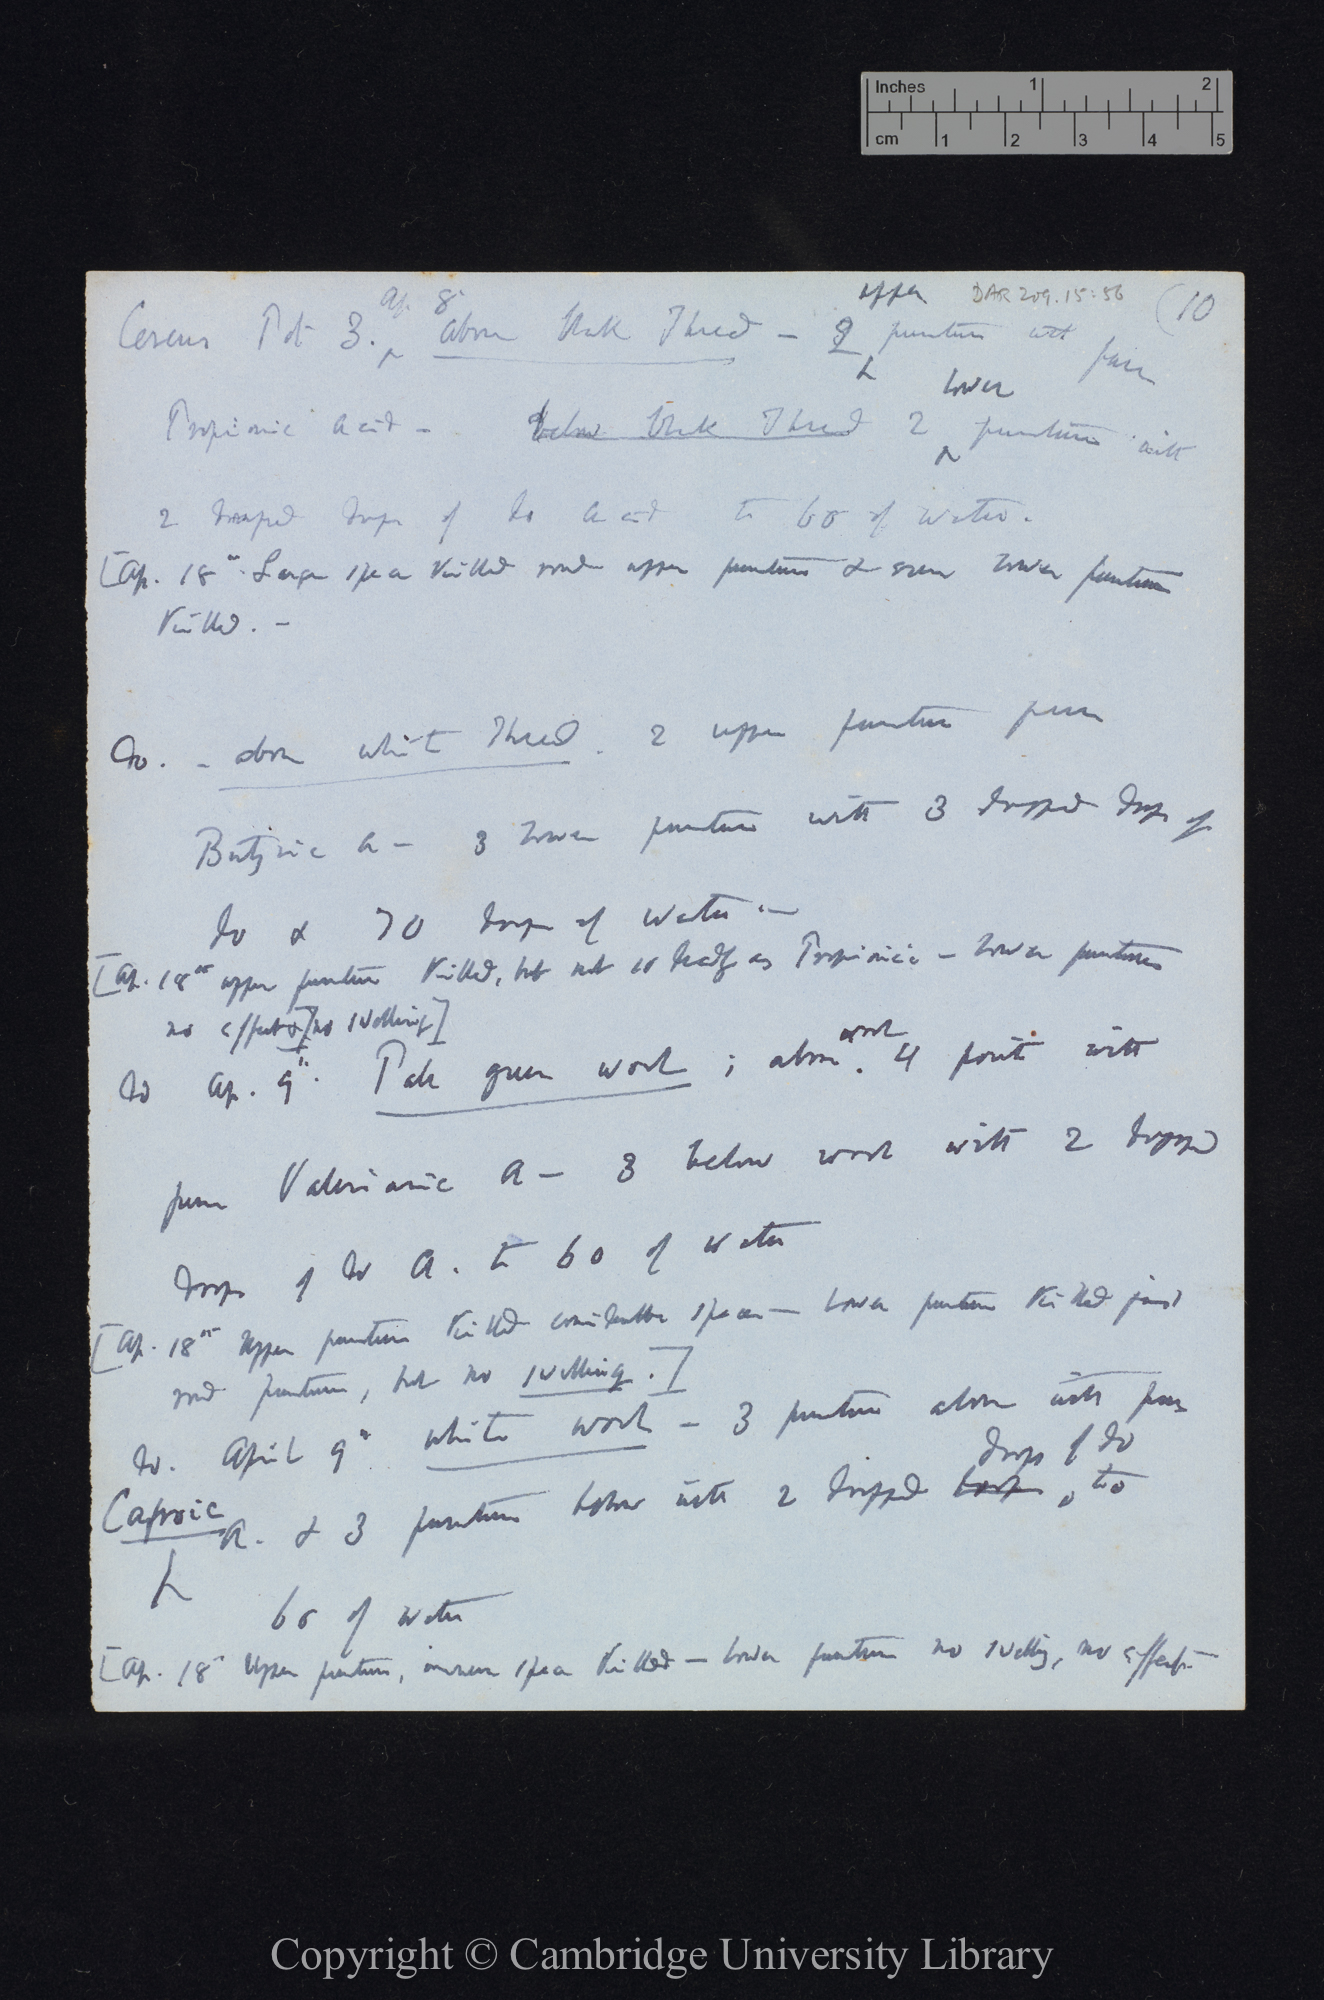 Inches 1 2
cm 1 2 3 4 5
DAR 209.15:56 (10
Cereus Pot 3. Ap. 8th above black Thread — 2 upper punctures with pure
Propionic acid — below black Thread 2 lower punctures with
2 dropped drops of do acid to 60 of water.
[Ap. 18th Large space killed round upper punctures & even lower punctures
killed. —
Do. — above white Thread. 2 upper punctures pure
Butyric A — 3 lower punctures with 3 dropped drops of
do & 70 drops of water —
[Ap. 18th upper punctures killed, but not so badly as Propionic — Lower punctures
no effect & [no swelling]
do Ap. 9th. Pale green wool; above wool. 4 points with
pure Valerianic A — 3 below wool with 2 dropped
drops of do A. to 60 of water
[Ap. 18th Upper punctures killed considerable space — Lower punctures killed just
round punctures, but no swelling.]
do. April 9th white wool — 3 punctures above with pure
Caproic A. & 3 punctures below with 2 dropped drops of do to
60 of water
[Ap. 18th Upper punctures, immense space killed — Lower punctures no swelling, no effect —
Copyright © Cambridge University Library